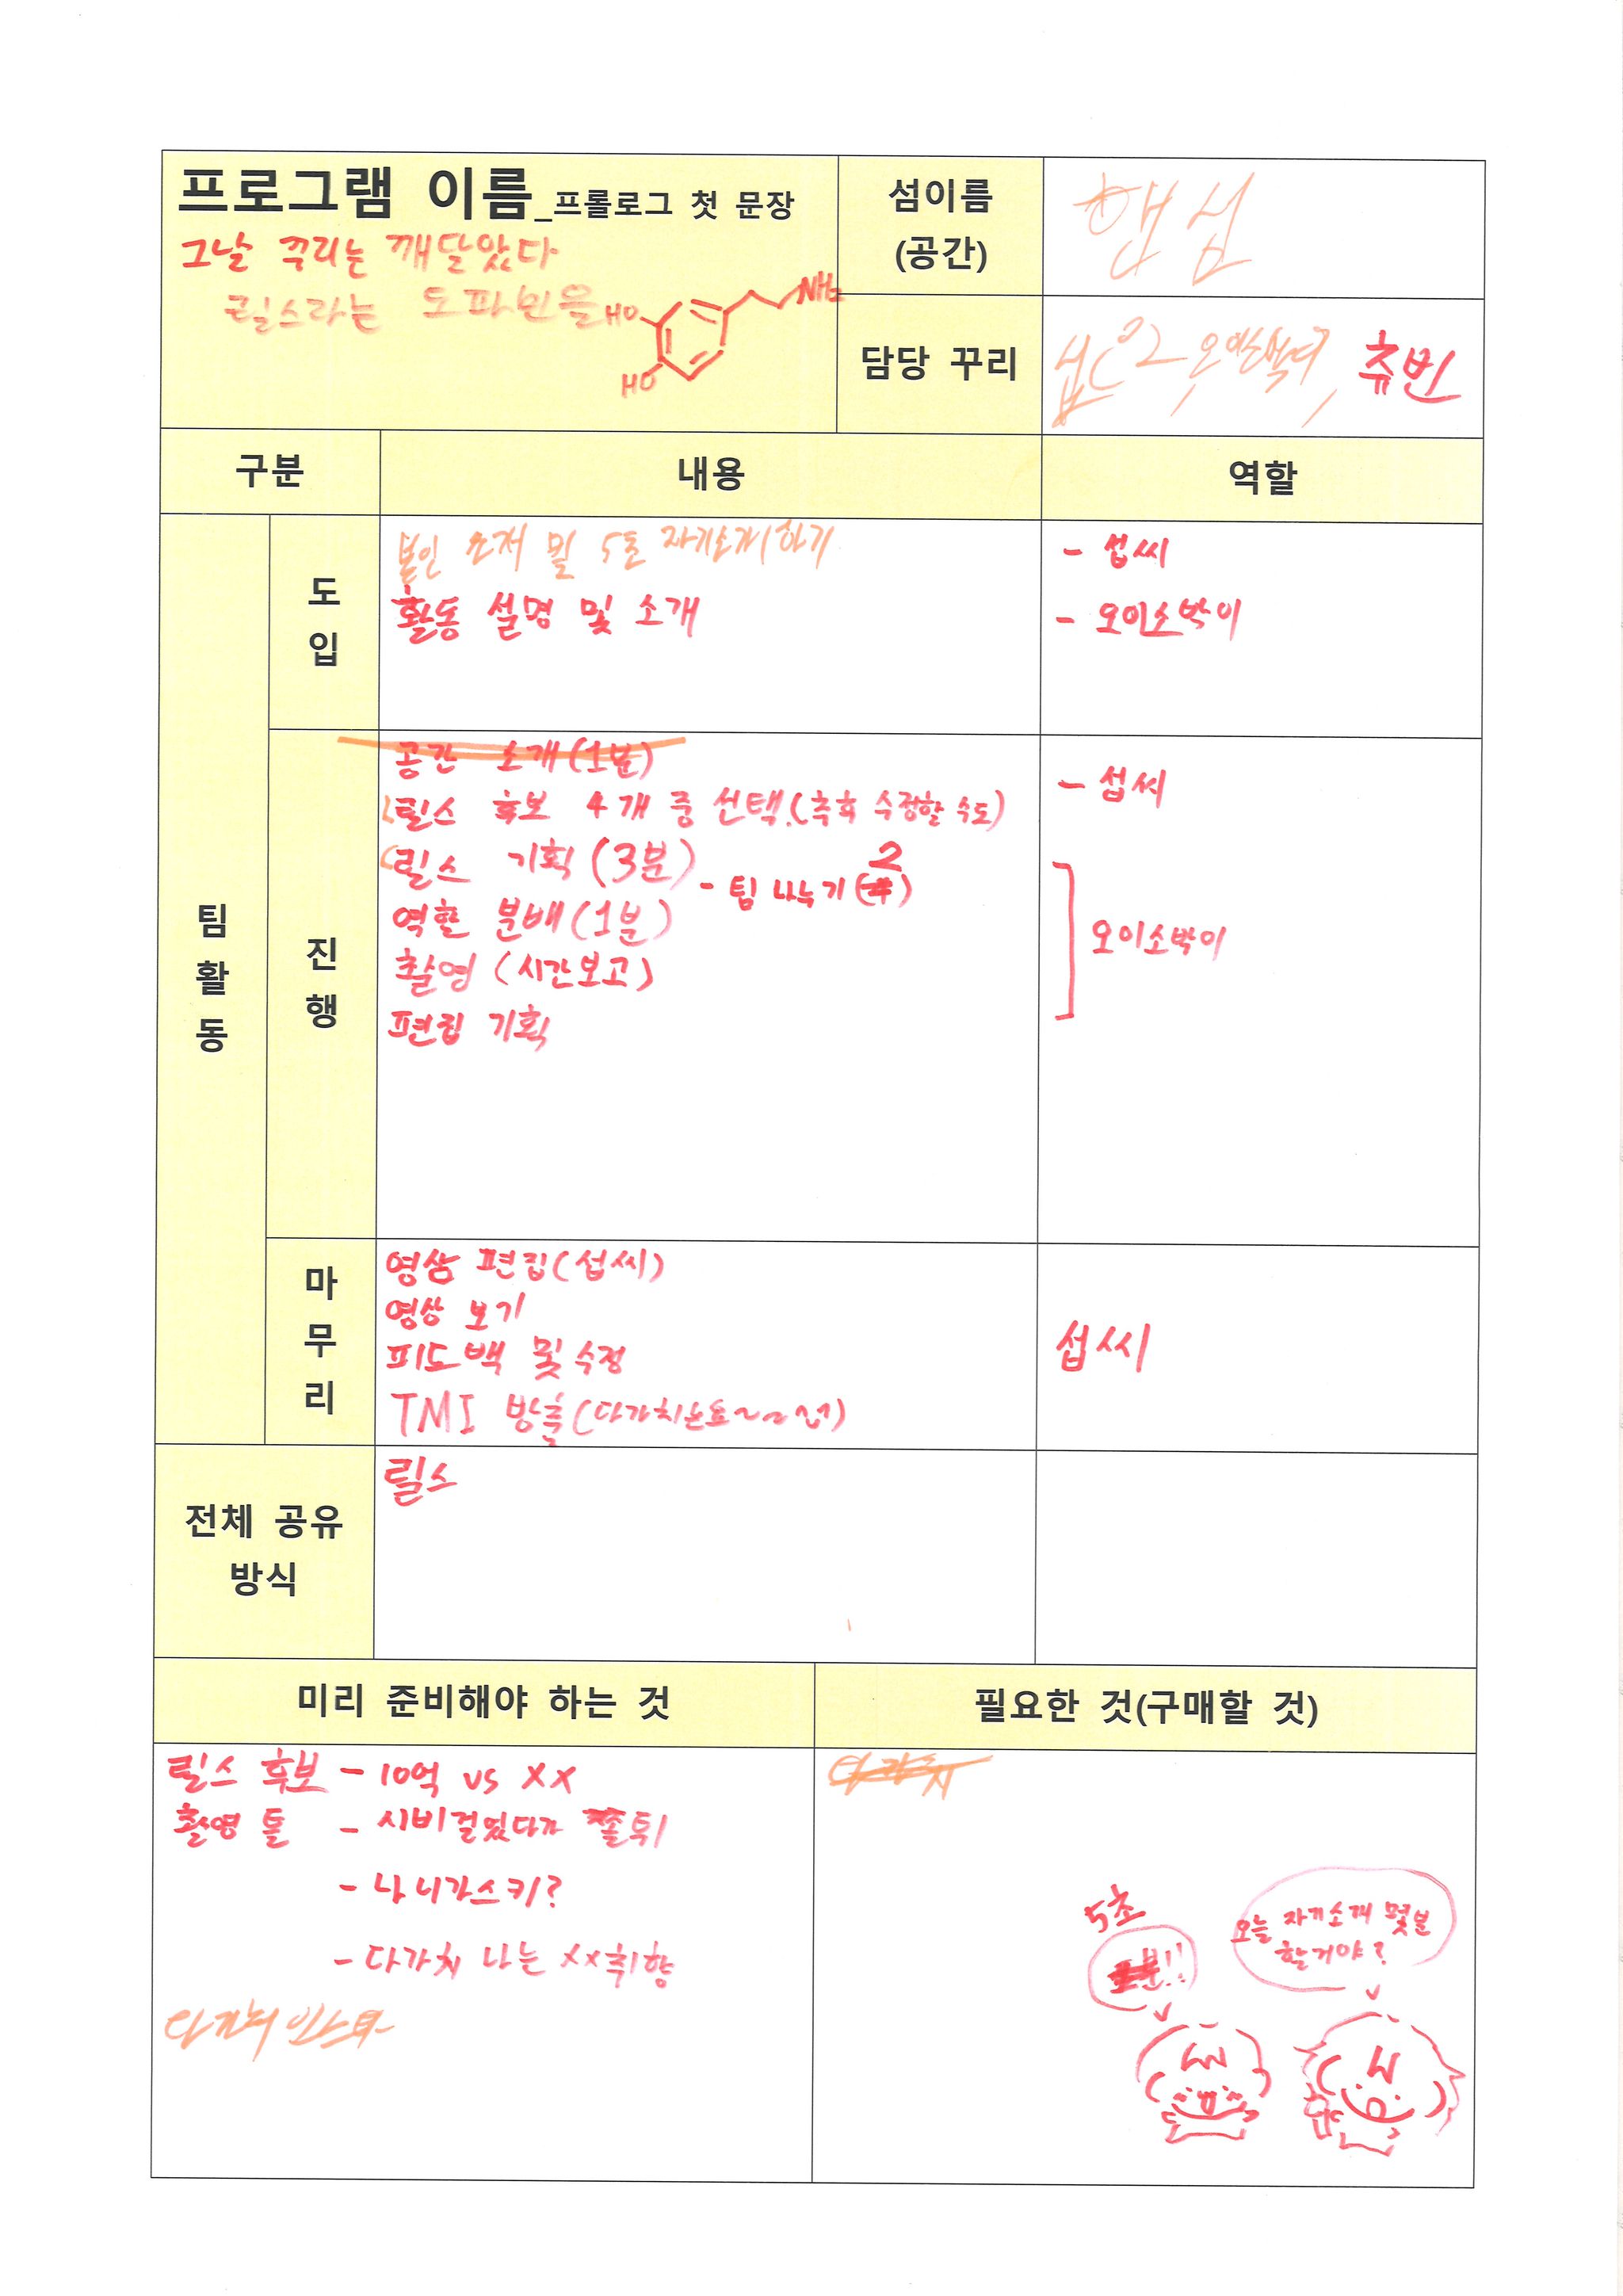 프로그램 이름_프롤로그 첫 문장
그날 꾸리는 깨달았다
릴스라는 도파민을
HO
NH₂
HO
섬이름
(공간)
섬
담당 꾸리
섭씨, 오이소박이, 츄빈
구분
내용
역할
팀활동
도입
본인 소개 및 5초 자기소개하기
활동 설명 및 소개
- 섭씨
- 오이소박이
진행
공간 소개(1분)
릴스 후보 4개 중 선택.(추후 수정할 수도)
릴스 기획(3분)
- 팀 나누기(2)
역할 분배(1분)
촬영 (시간보고)
편집 기획
- 섭씨
오이소박이
마무리
영상 편집(섭씨)
영상 보기
피드백 및 수정
TMI 방출(다가치
섭씨
전체 공유
방식
릴스
미리 준비해야 하는 것
필요한 것(구매할 것)
릴스 후보 - 10억 vs XX
촬영 톨 - 시비걸었다가 쫄튀
- 나니가스키?
- 다가치 나는 XX취향
5초
오늘 자기소개 몇분
할거야?